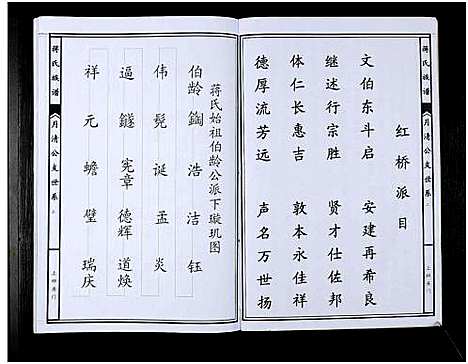 红桥派目
文伯东斗启 安建再希良
继述行宗胜 贤才仕佐邦
体仁长惠吉 敦本永佳祥
德厚流芳远 声名万世扬
蒋氏族谱
月清公支世系
蒋氏始祖伯龄公派下璇玑图
伯龄 浩 洁 钰
伟 髡 诞 孟 炎
逼 鐩 宪章 德辉 道焕
祥 元 蟾 璧 瑞庆
蒋氏族谱
月清公支世系